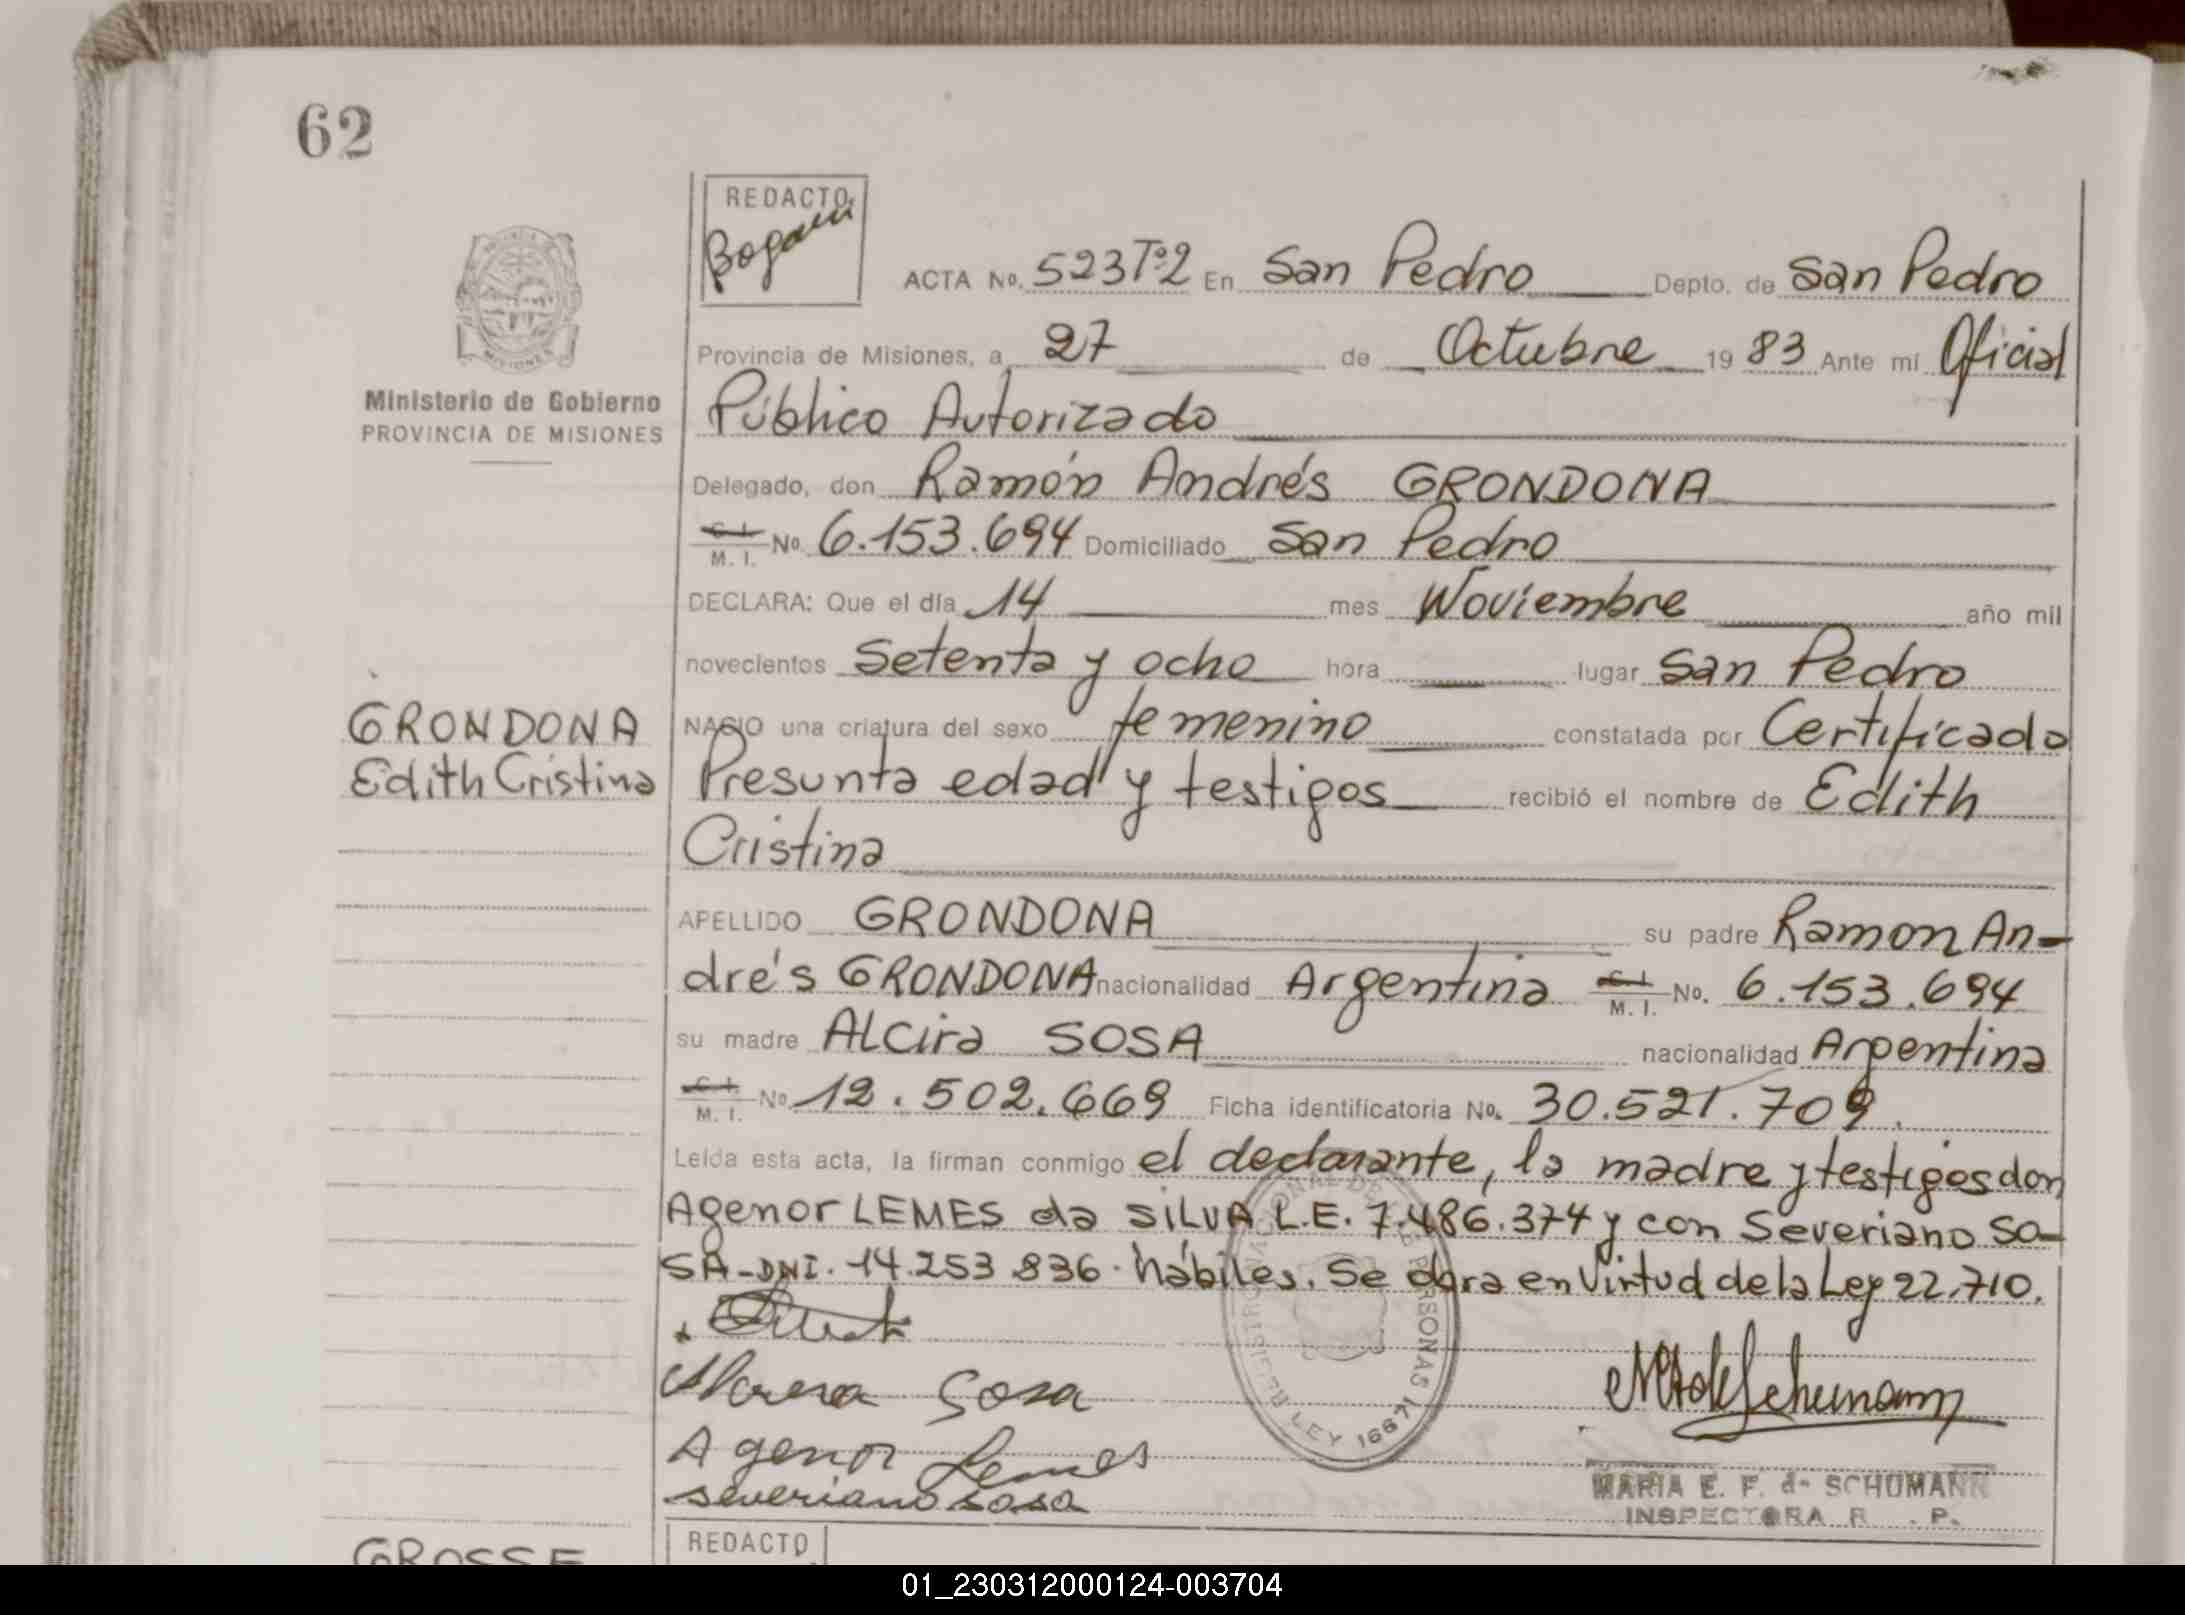 62
REDACTO
ACTA No. 523 Tº 2 En San Pedro Depto. de San Pedro
Provincia de Misiones, a 27 de Octubre 1983 Ante mí Oficial
Ministerio de Gobierno
PROVINCIA DE MISIONES
Público Autorizado
Delegado, don Ramón Andrés GRONDONA
C. I. M. I. No. 6.153.694 Domiciliado San Pedro
DECLARA: Que el día 14 mes Noviembre año mil
novecientos Setenta y ocho hora lugar San Pedro
GRONDONA
Edith Cristina
NACIO una criatura del sexo femenino constatada por Certificado
Presunta edad y testigos recibió el nombre de Edith
Cristina
APELLIDO GRONDONA su padre Ramon An-
drés GRONDONA nacionalidad Argentina C. I. M. I. No. 6.153.694
su madre Alcira SOSA nacionalidad Argentina
C. I. M. I. No. 12.502.669 Ficha identificatoria No. 30.521.709.
Leída esta acta, la firman conmigo el declarante, la madre y testigos don
Agenor LEMES da SILVA L.E. 7.486.374 y con Severiano SO-
SA-DNI. 14.253.836. hábiles. Se labra en Virtud de la Ley 22.710.
REGISTRO NACIONAL DE LAS PERSONAS LEY 16671
Sosa
Agenor Lemes
severiano sosa
MARIA E. F. de SCHUMANN
INSPECTORA R . P.
GROSSE
REDACTO
01_230312000124-003704